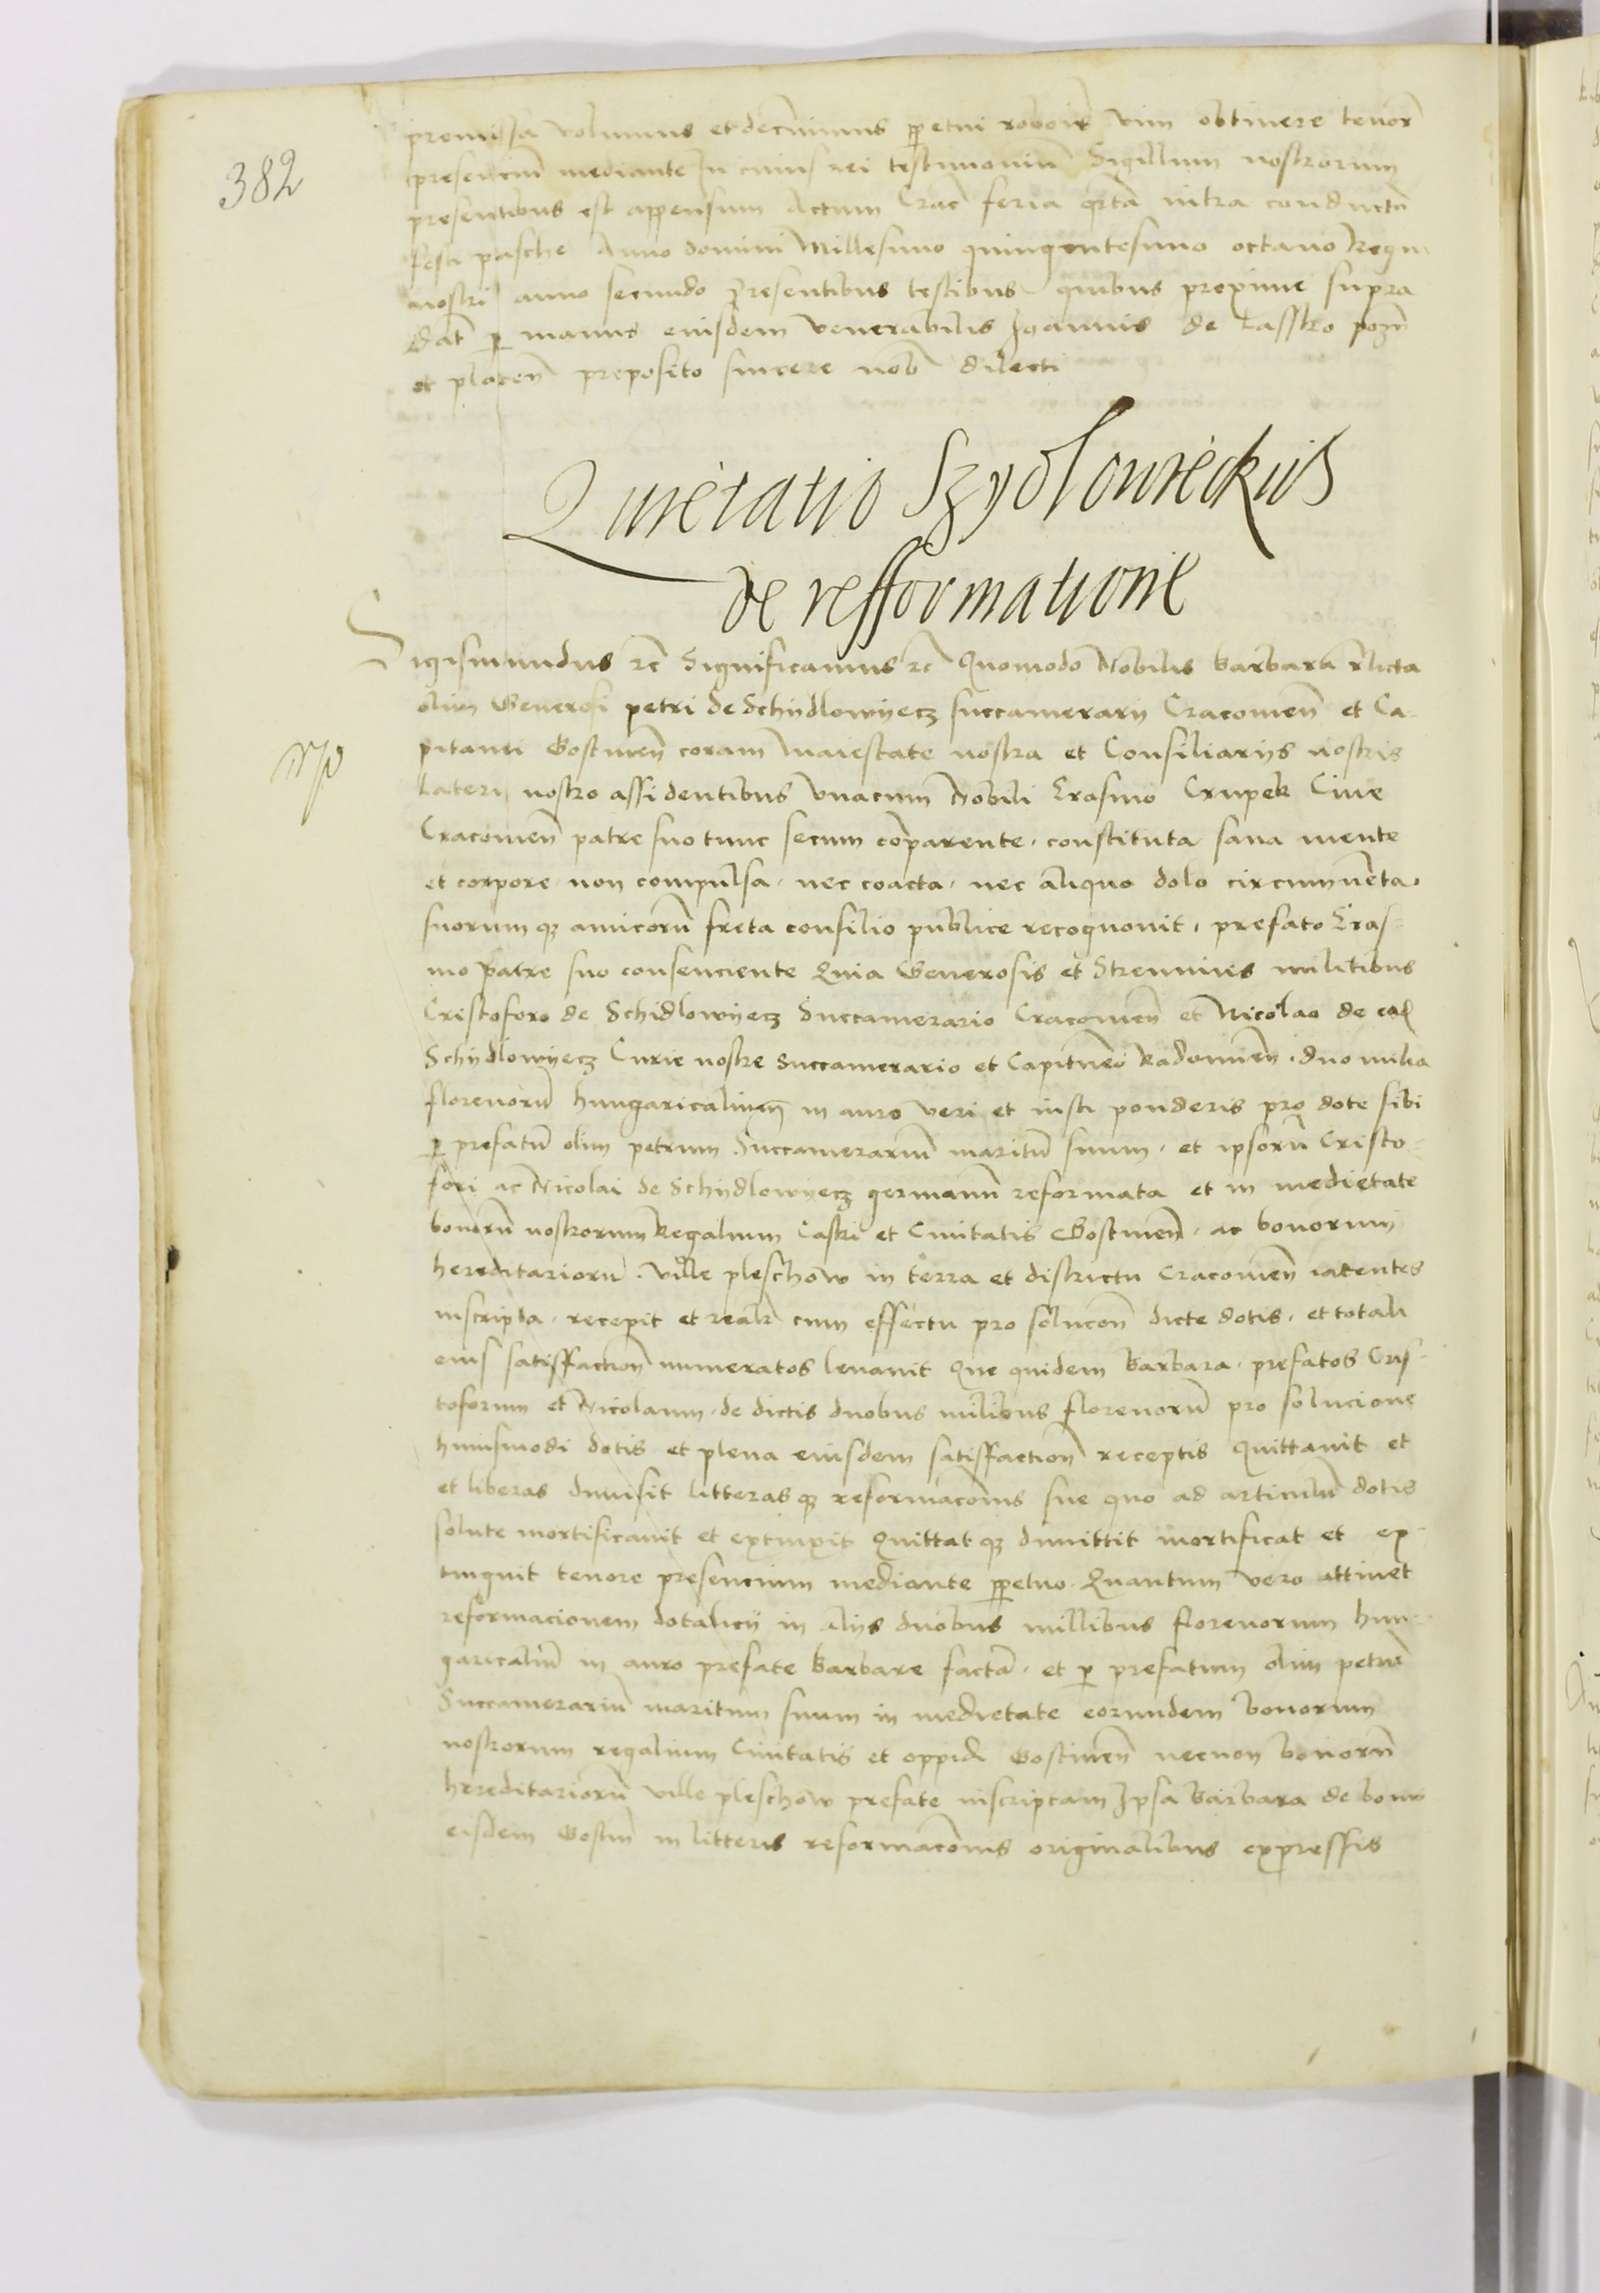 382
premissa volumus et decernimus ppetui roboris vim obtinere tenore
presencium mediante In cuius rei testimonium Sigillum nostrorum
presentibus est appensum Actum Crac feria qrta infra conductu
festi pasche Anno domini Millesimo quingentesimo octavo Regni
nostri anno secundo Presentibus testibus quibus proxime supra
Dat p manus eiusdem venerabilis Joannis de Lassko pozn
et plocen preposito sincere nob dilecti
Quietatio Szydlowieckiis
de refformatione
Sigismundus rc Significamus rc Quomodo Nobilis Barbara rlicta
olim Generosi petri de Schydlowyecz succamerarij Cracovien et Ca-
pitanei Gostinen coram Maiestate nostra et Consiliarijs nostris
Lateri nostro assidentibus vnacum Nobili Erasmo Crupek Cive
Cracovien patre suo tunc secum comparente, constituta sana mente
et corpore non compulsa, nec coacta, nec aliquo dolo circumventa,
suorumq amicoru freta consilio publice recognovit, prefato Eras-
mo patre suo consenciente Quia Generosis et Strennuis militibus
Cristoforo de Schidlowyecz Succamerario Cracovien et Nicolao de ead
Schydlowyecz Curie nostre succamerario et Capitaneo Radomien, duo milia
florenoru hungaricalium in auro veri et iusti ponderis pro dote sibi
p prefatu olim petrum Succamerariu maritu suum, et ipsoru Cristo-
fori ac Nicolai de Schydlowyecz germanu reformata et in medietate
bonoru nostrorum Regalium Castri et Civitatis Gostinen, ac bonorum
hereditarioru. ville pleschow in terra et districtu Cracovien iacentes
inscripta, recepit et realr cum effectu pro solucone dicte dotis, et totali
eius satisfaction numeratos levavit Que quidem Barbara, prefatos Cris-
toforum et Nicolaum, de dictis duobus milibus florenoru pro solucione
huiusmodi dotis et plena eiusdem satisfaction receptis Quittavit et
et liberas dimisit litterasq reformaconis sue quo ad articulu dotis
solute mortificavit et extinxit Quittatq dimittit mortificat et ex-
tinguit tenore presencium mediante ppetuo. Quantum vero attinet
reformacionem dotalicij in alijs duobus millibus florenorum hun-
garicaliu in auro prefate Barbare facta, et p prefatum olim petru
Succamerariu maritum suum in medietate eorundem bonorum
nostrorum regalium Civitatis et oppidi Gostinen necnon bonoru
hereditarioru ville pleschow prefate inscriptam Ipsa Barbara de bonis
eisdem Gostin in litteris reformaconis originalibus expressis